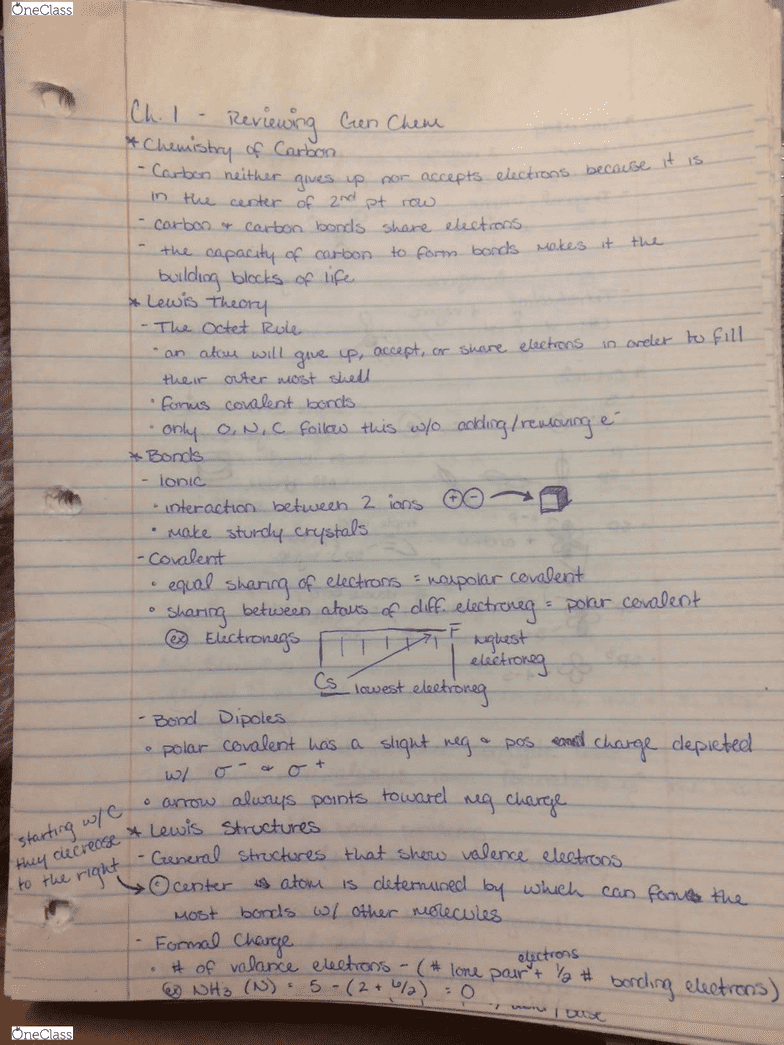 OneClass
Ch. 1 - Reviewing Gen Chem
* Chemistry of Carbon
- Carbon neither gives up nor accepts electrons because it is
in the center of 2nd pt row
- carbon + carbon bonds share electrons
- the capacity of carbon to form bonds makes it the
building blocks of life
* Lewis Theory
- The Octet Rule
• an atom will give up, accept, or share electrons in order to fill
their outer most shell
• forms covalent bonds
• only O, N, C follow this w/o adding/removing e⁻
* Bonds
- Ionic
• interaction between 2 ions ⊕⊖
• make sturdy crystals
- Covalent
• equal sharing of electrons = nonpolar covalent
• sharing between atoms of diff. electroneg = polar covalent
ex Electronegs F highest
electroneg
Cs lowest electroneg
- Bond Dipoles
• polar covalent has a slight neg + pos charge depicted
w/ σ⁻ + σ⁺
• arrow always points toward neg charge
* Lewis Structures
starting w/ C
they decrease
to the right
- General structures that show valence electrons
center atom is determined by which can form the
most bonds w/ other molecules
- Formal Charge
• # of valance electrons - (# lone pair electrons + 1/2 # bonding electrons)
ex NH3 (N) = 5 - (2 + 6/2) = 0
/ base
OneClass